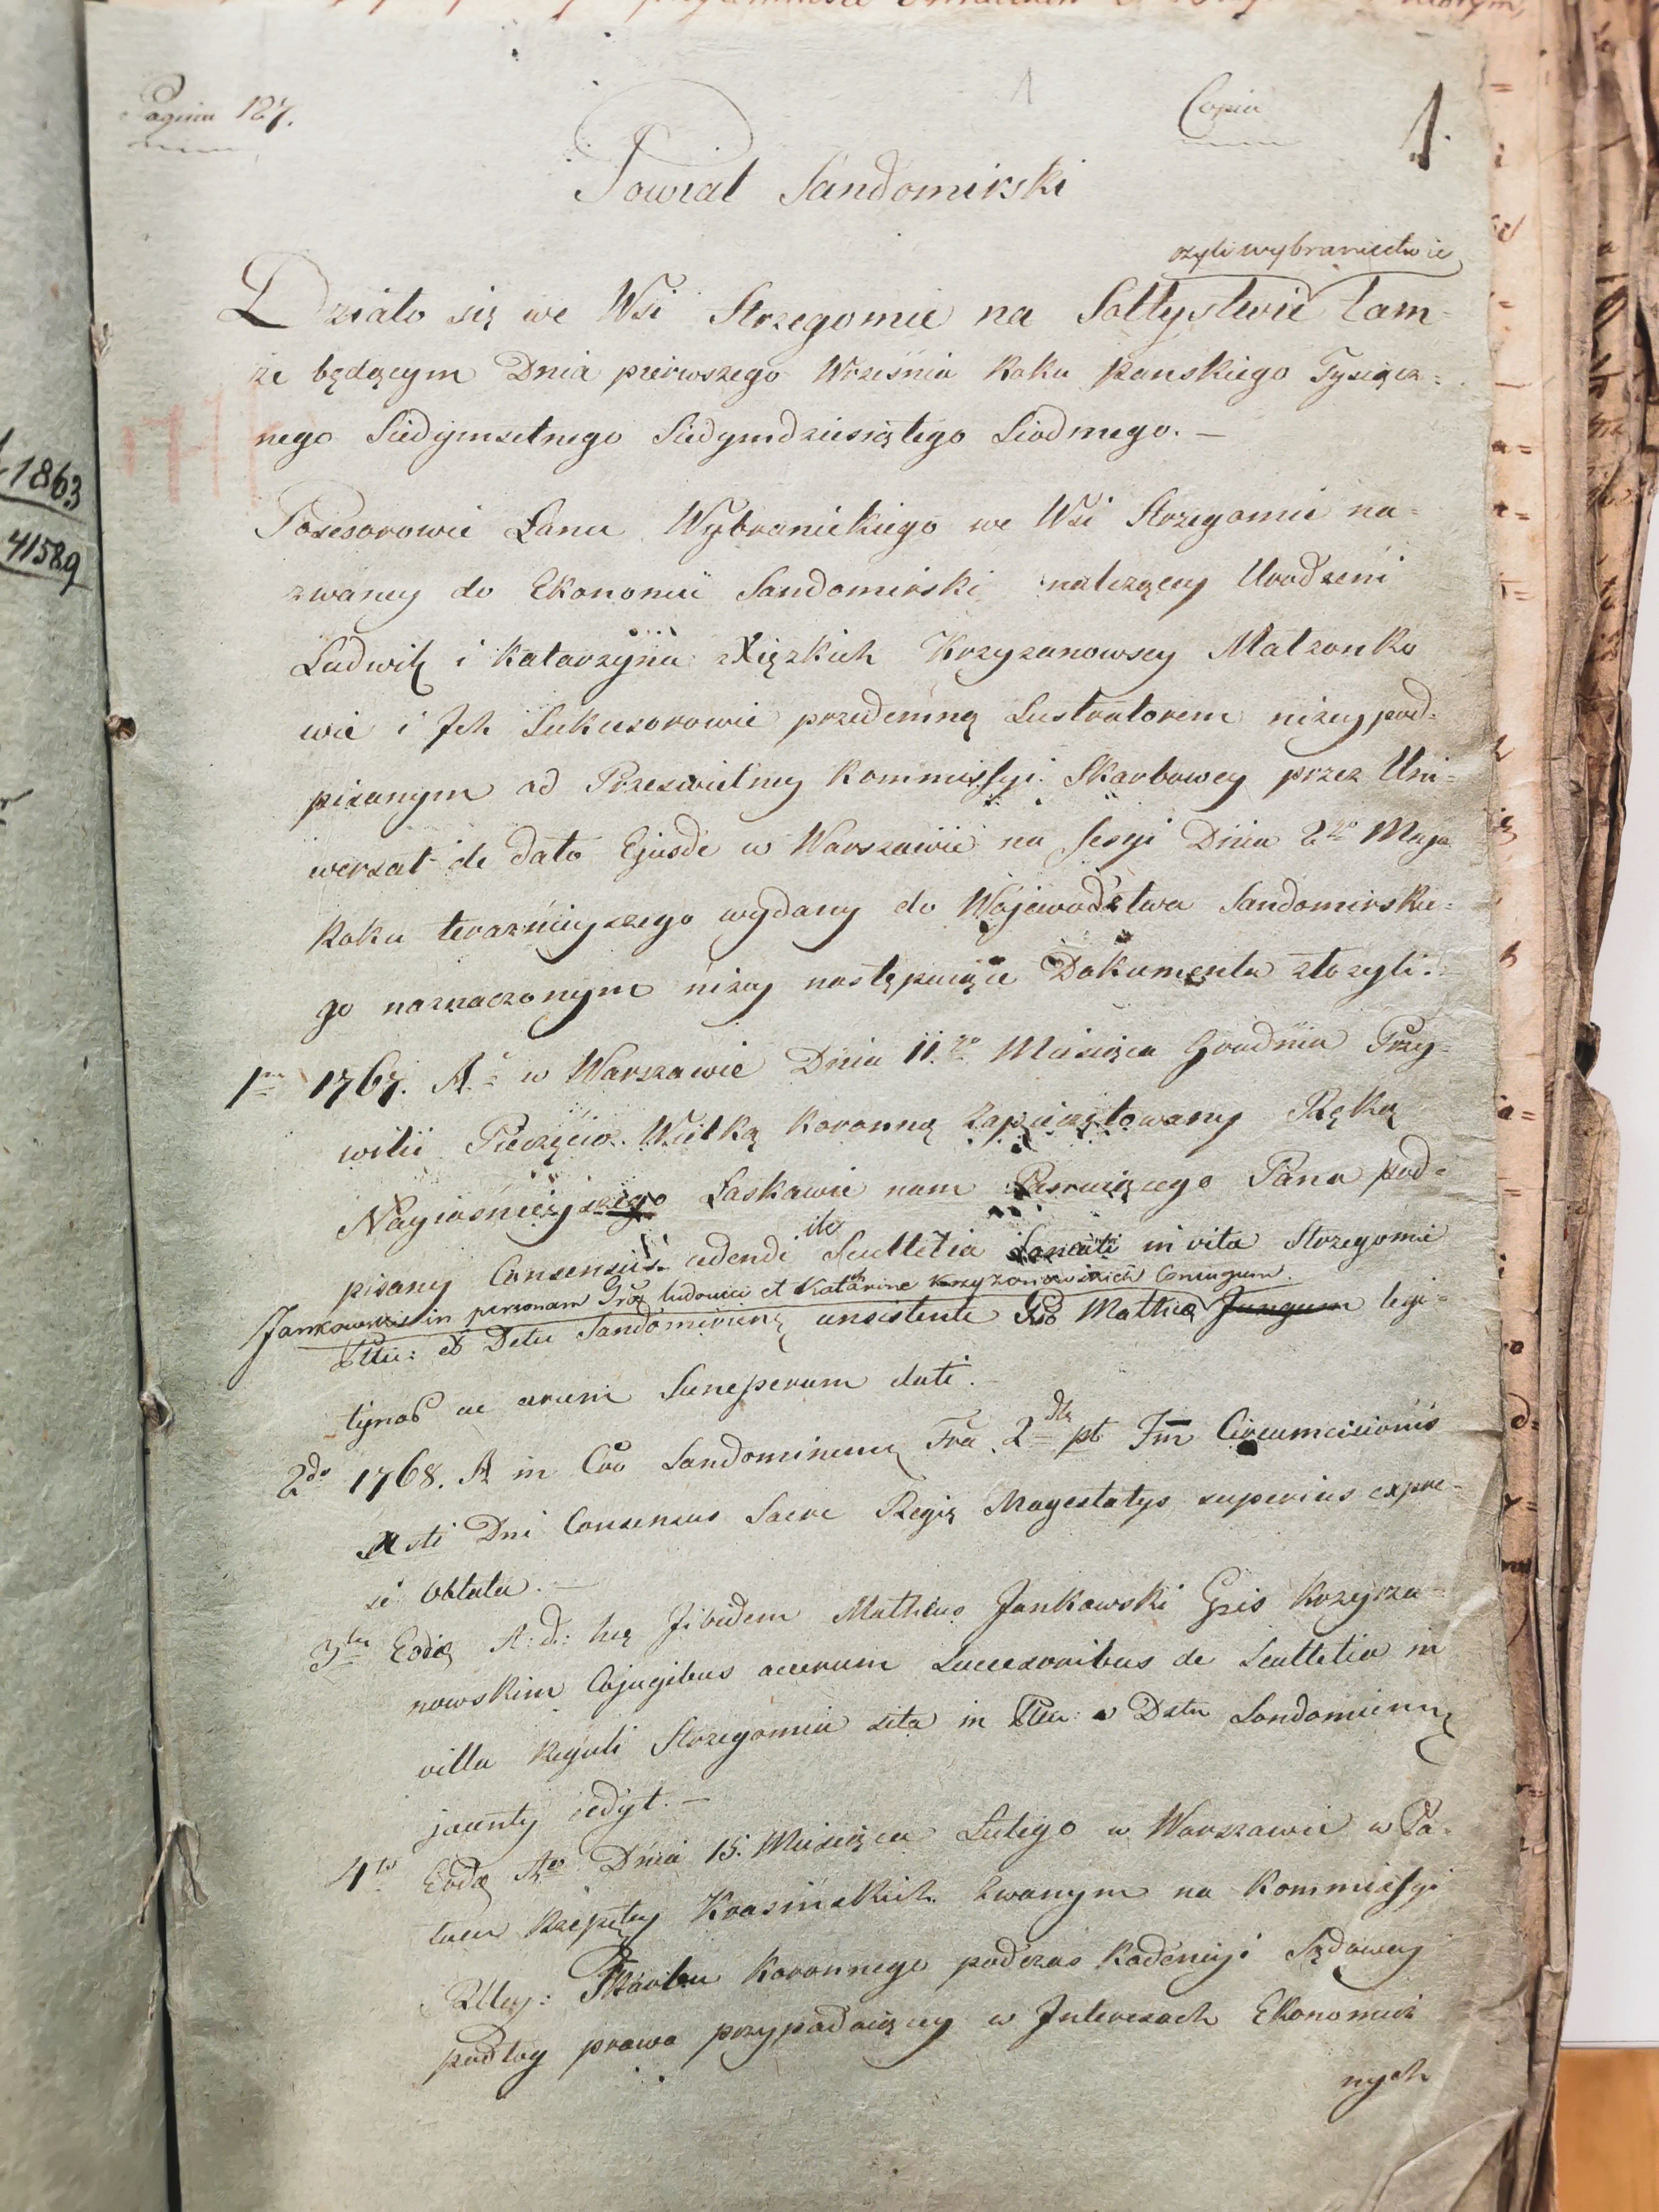 Pagina 127.
Copia
1.
Powiat Sandomirski
czyli wybraniectwie
Działo się we Wsi Strzegomie na Sołtystwie tam=
że będącym Dnia pierwszego Września Roku pańskiego Tysiącz=
nego Siedymsetnego Siedymdziesiątego Siodmego. —
Posesorowie Łanu Wybranickiego we Wsi Strzegomie na=
zwaney do Ekonomii Sandomirski należący Urodzeni
Ludwik i Katarzyna z Xiężkich Krzyzanowscy Małżonko
wie i Ich Sukcesorowie przedemną Lustratorem niżey pod=
pisanym od Prześwietney Kommissyi Skarbowey przez Uni=
wersał de dato Ejusdē w Warszawie na Sesyi Dnia 2go Maja
Roku teraznieyszego wydany do Wojewodztwa Sandomirskie=
go naznaczonym niżey następuiące Dokumenta złożyli.
1mo 1767. Ao w Warszawie Dnia 11go Miesiąca Grudnia Przy=
wilii Pieczęcią Wielką Koronną Zapieczętowany Ręką
Nayiaśnieyszego Łaskawie nam Panuiącego Pana pod=
pisany Consensus cedendi Scultetia in villa Strzegomie
Jankowski in personam Gros Ludovici et Katharine Krzyzanowskich Coniugum.
Pttu: et Dctu Sandomirienę consistente Gso Matheo legi=
tymos ac eorum Suncperum dati.
2do 1768. A in Cŏo Sandomirienę Fra 2da pt Fm Circumcisionis
Xsti Dni Consensus Sacre Regię Magestatys superius expre=
si Oblata. —
3tio Eodę A: d: hę Jibidem Matheus Jankowski Gsis Krzyrza=
nowskim Cojugibus acerum Successoribus de Scultetia in
villa Regali Strzegomia sita in Pttu: & Dctu Sandomirienę
jacenty cedyt. —
4to Eodę Ao Dnia 15. Miesiąca Lutego w Warszawie w Pa=
łacu Rzepltey Krasińskich zwanym na Kommissyi
Rltey: Skarbu Koronnego podczas Kadencyi Sądowey
podług prawa przypadaiącey w Interesach Ekonomicz
nych
1863
41589